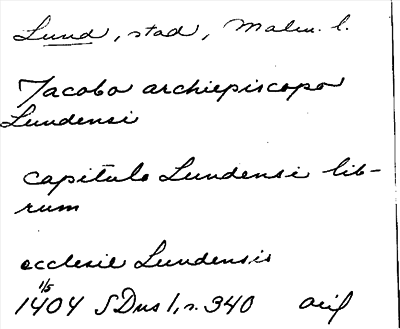 Lund, stad, Malm. l.
Jacobo archiepiscopo
Lundensi
capitulo Lundensi lib-
rum
ecclesie Lundensis
1/5
1404 SDns 1, s. 340